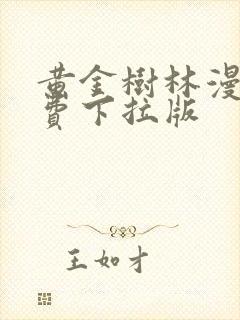 黃金樹林漫
費下拉版
王如才